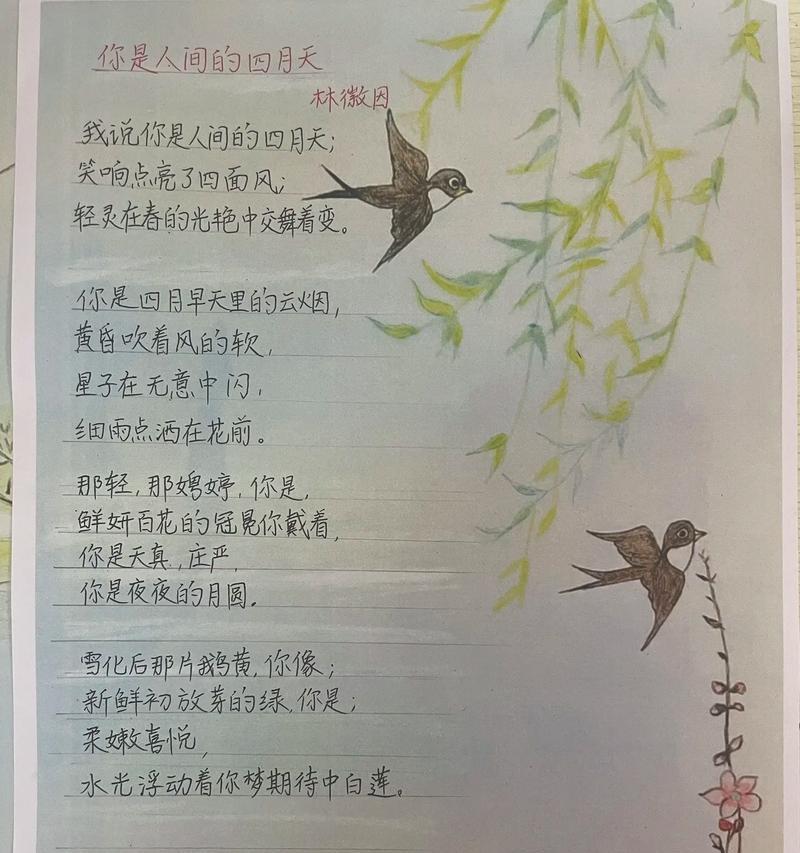 你是人间的四月天
林徽因
我说你是人间的四月天;
笑响点亮了四面风;
轻灵在春的光艳中交舞着变。
你是四月早天里的云烟,
黄昏吹着风的软,
星子在无意中闪,
细雨点洒在花前。
那轻,那娉婷,你是,
鲜妍百花的冠冕你戴着,
你是天真,庄严,
你是夜夜的月圆。
雪化后那片鹅黄,你像;
新鲜初放芽的绿,你是;
柔嫩喜悦,
水光浮动着你梦期待中白莲。